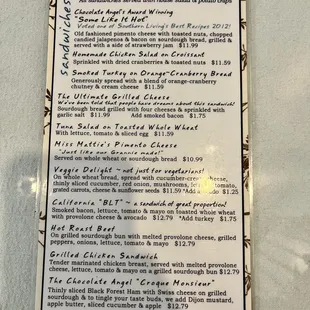 All sandwiches served with house salad & potato chips
sandwiches
Chocolate Angel's Award Winning
"Some Like It Hot"
Voted one of Southern Living's Best Recipes 2012!
Old fashioned pimento cheese with toasted nuts, chopped
candied jalapenos & bacon on sourdough bread, grilled &
served with a side of strawberry jam $11.99
Homemade Chicken Salad on Croissant
Sprinkled with dried cranberries & toasted nuts $11.59
Smoked Turkey on Orange-Cranberry Bread
Generously spread with a blend of orange-cranberry
chutney & cream cheese $11.59
The Ultimate Grilled Cheese
We've been told that people have dreams about this sandwich!
Sourdough bread grilled with four cheeses & sprinkled with
garlic salt $11.99 Add smoked bacon $1.75
Tuna Salad on Toasted Whole Wheat
With lettuce, tomato & sliced egg $11.59
Miss Mattie's Pimento Cheese
"Just like our Grannie made!"
Served on whole wheat or sourdough bread $10.99
Veggie Delight ~ not just for vegetarians!
On whole wheat bread, spread with cucumber-cream cheese,
thinly sliced cucumber, red onion, mushrooms, lettuce, tomato,
grated carrots, cheese & sunflower seeds $11.59 Add avocado $1.25
California "BLT" ~ a sandwich of great proportion!
Smoked bacon, lettuce, tomato & mayo on toasted whole wheat
with provolone cheese & avocado $12.79 *Add turkey $1.75
Hot Roast Beef
On grilled sourdough bun with melted provolone cheese, grilled
peppers, onions, lettuce, tomato & mayo $12.79
Grilled Chicken Sandwich
Tender marinated chicken breast, served with melted provolone
cheese, lettuce, tomato & mayo on a grilled sourdough bun $12.79
The Chocolate Angel "Croque Monsieur"
Thinly sliced Black Forest Ham with Swiss cheese on grilled
sourdough & to tingle your taste buds, we add Dijon mustard,
apple butter, sliced cucumber & apple $12.79